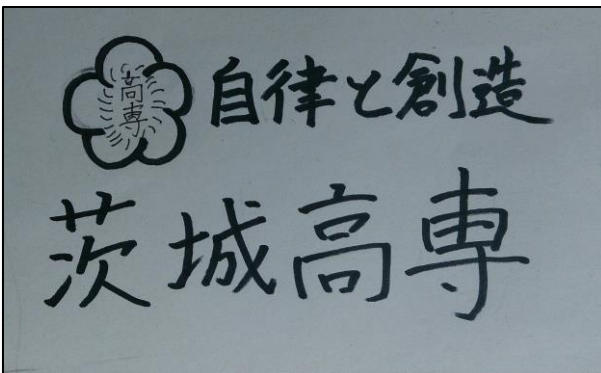 高専
自律と創造
茨城高専